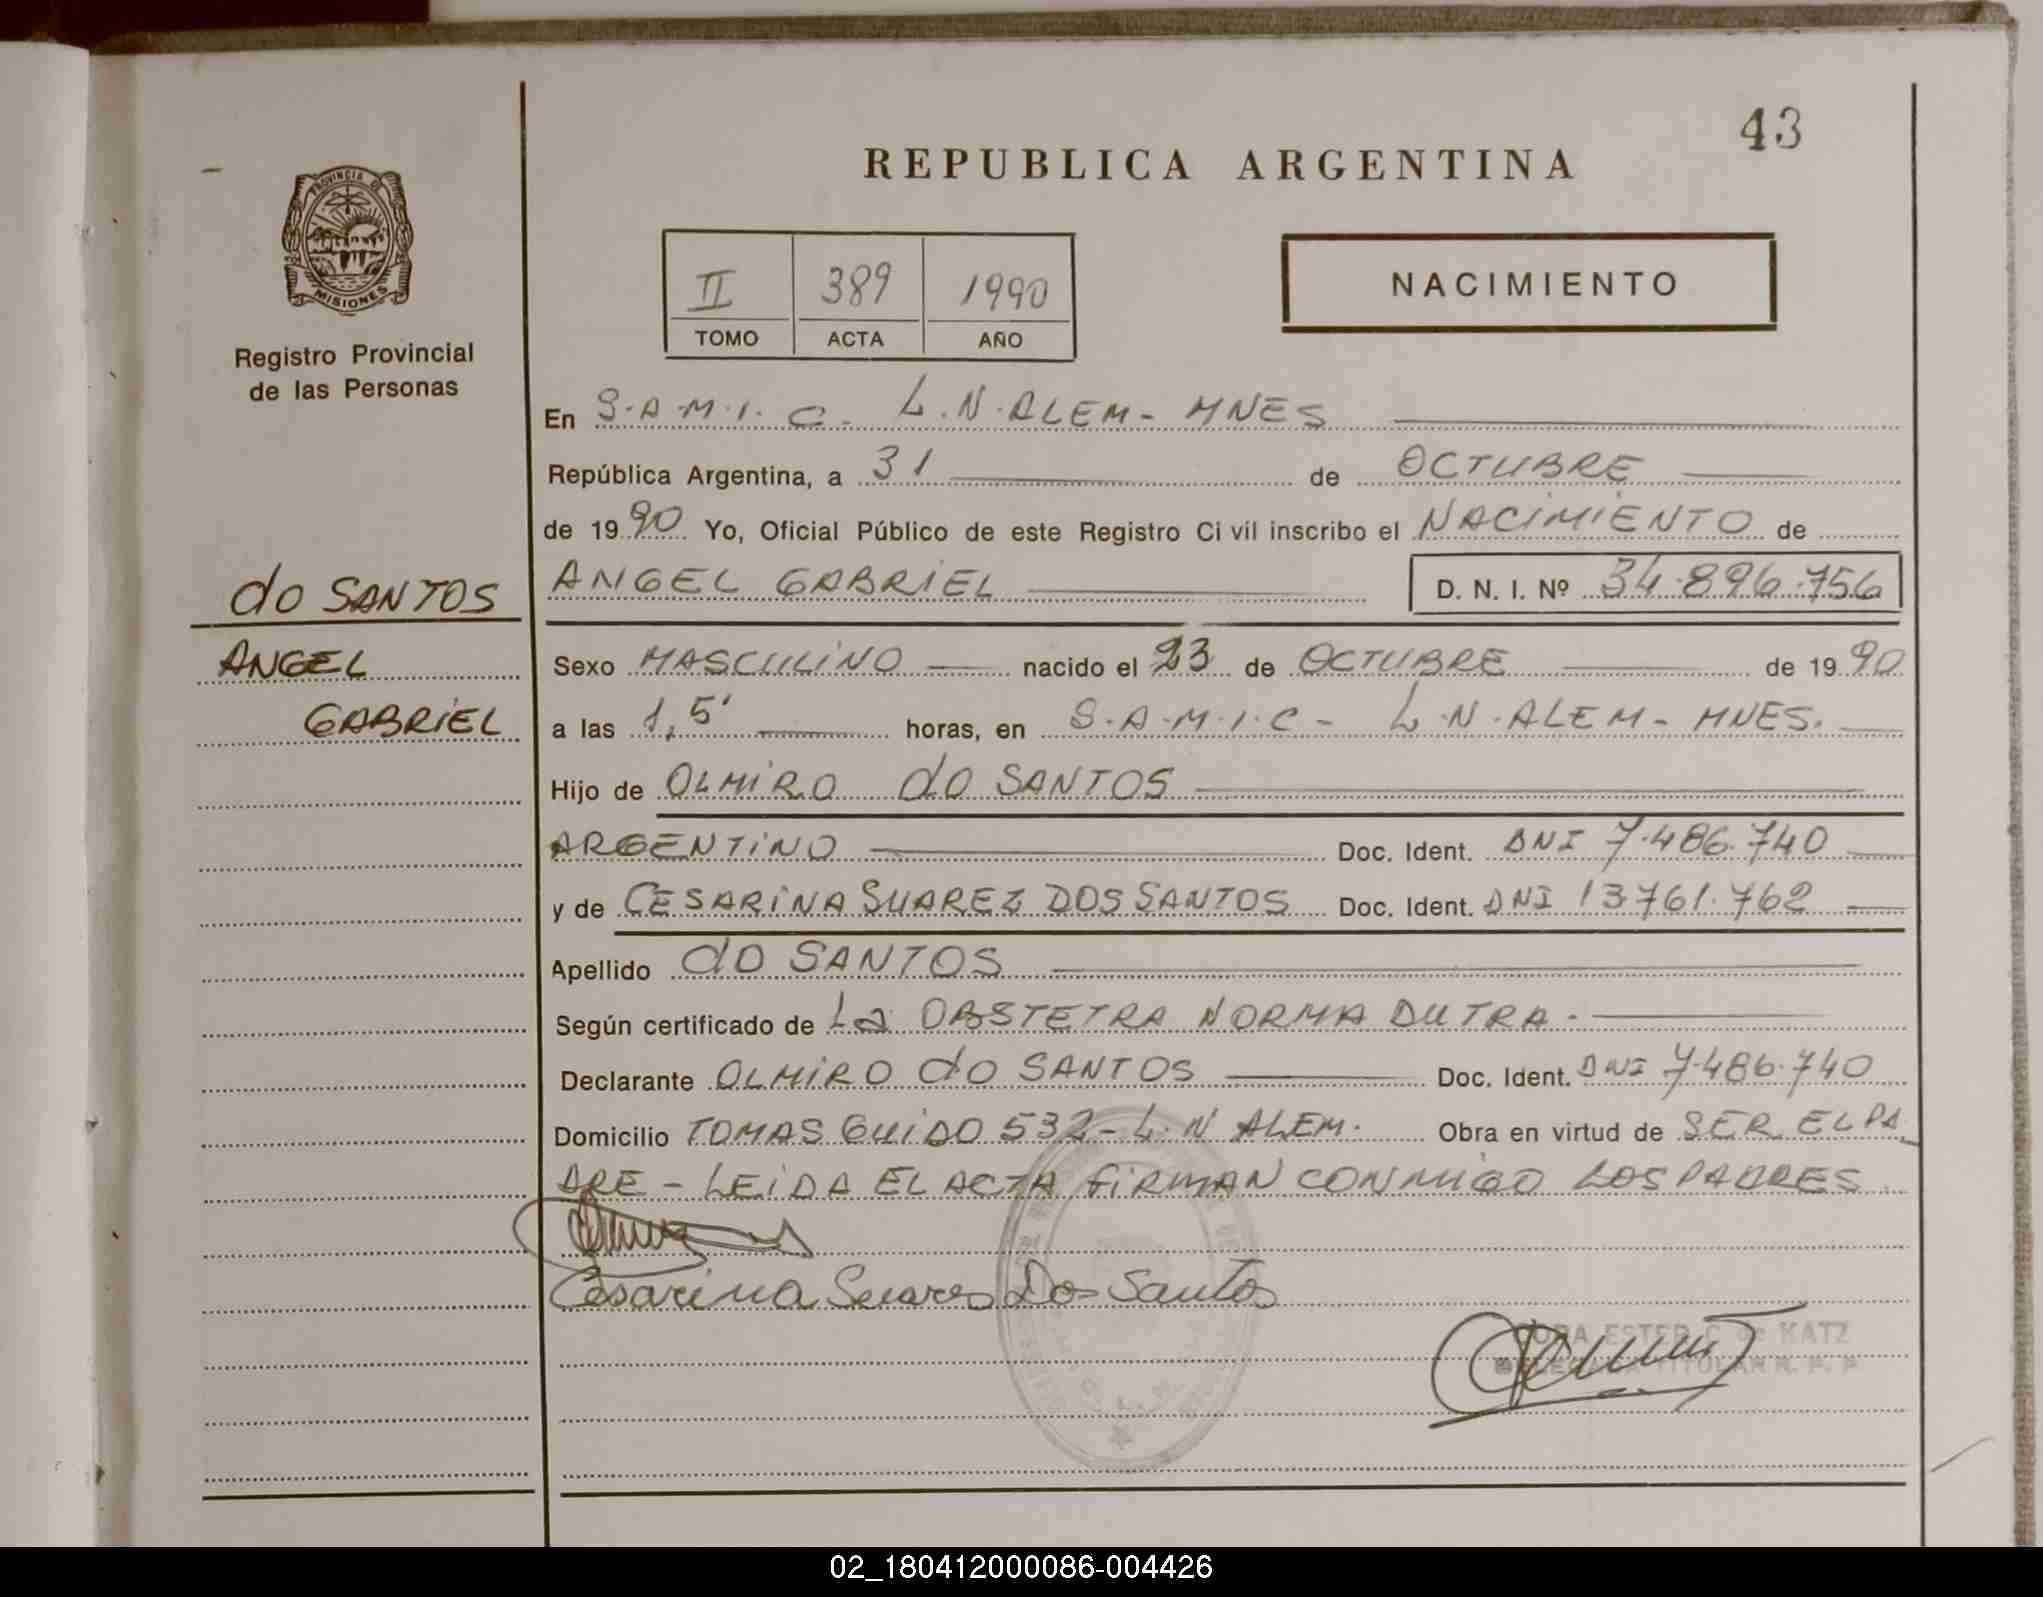 43
REPUBLICA ARGENTINA
PROVINCIA DE
MISIONES
Registro Provincial
de las Personas
II 389 1990
TOMO ACTA AÑO
NACIMIENTO
En S.A.M.I.C. L.N.ALEM- MNES
República Argentina, a 31 de OCTUBRE
de 1990 Yo, Oficial Público de este Registro Civil inscribo el NACIMIENTO de
ANGEL GABRIEL D. N. I. Nº 34.896.756
do SANTOS
ANGEL
GABRIEL
Sexo MASCULINO nacido el 23 de OCTUBRE de 1990
a las 1,5' horas, en S.A.M.I.C- L.N.ALEM- MNES.
Hijo de OLMIRO do SANTOS
ARGENTINO Doc. Ident. DNI 7.486.740
y de CESARINA SUAREZ DOS SANTOS Doc. Ident. DNI 13761.762
Apellido do SANTOS
Según certificado de La OBSTETRA NORMA DUTRA.
Declarante OLMIRO do SANTOS Doc. Ident. DNI 7.486.740
Domicilio TOMAS GUIDO 532- L.N ALEM. Obra en virtud de SER EL PA_
DRE - LEIDA EL ACTA FIRMAN CONMIGO LOS PADRES
Cesarina Suares Dos Santos
ESTER C de KATZ
TITULAR R. P. P
02_180412000086-004426